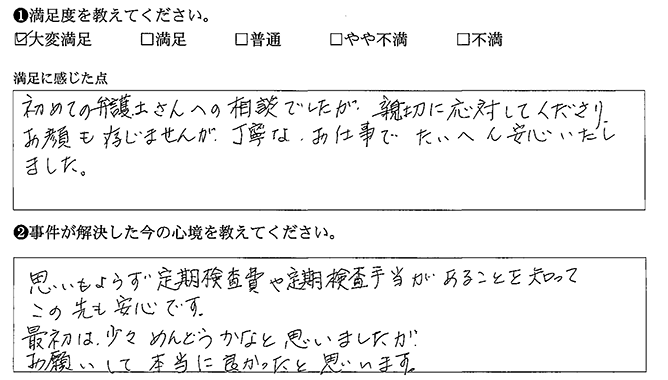 ❶満足度を教えてください。
☑大変満足 □満足 □普通 □やや不満 □不満
満足に感じた点
初めての弁護士さんへの相談でしたが、親切に応対してくださり、
お顔も存じませんが、丁寧な、お仕事で たいへん安心いたし
ました。
❷事件が解決した今の心境を教えてください。
思いもよらず定期検査費や定期検査手当があることを知って
この先も安心です。
最初は、少々めんどうかなと思いましたが、
お願いして本当に良かったと思います。